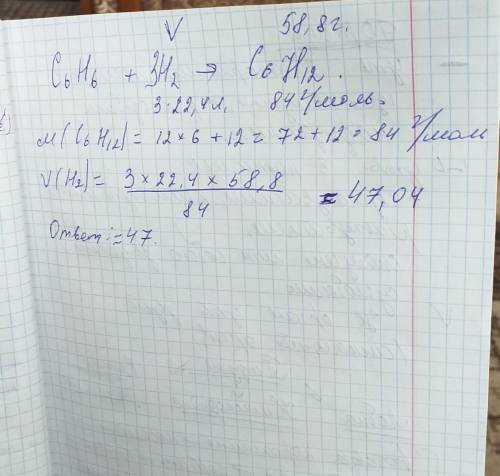 V 58,8г.
C6H6 + 3H2 → C6H12.
3·22,4л. 84 г/моль.
M(C6H12) = 12×6+12 = 72+12 = 84 г/мол
V(H2) = 3×22,4×58,8 / 84 = 47,04
Ответ: =47.